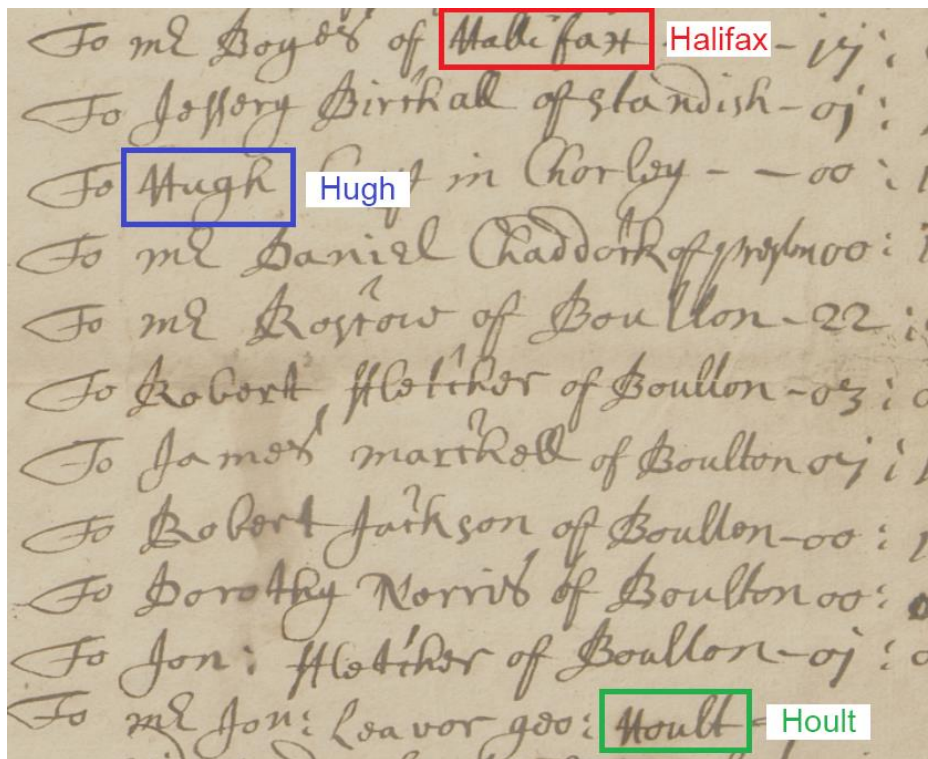 To mr Boyes of Hallifax Halifax - 17:
To Jeffery Birchall of Standish - 01:
To Hugh Hugh in Chorley - - 00:
To mr Daniel Chaddock of preston 00:
To mr Rostow of Boulton - 22:
To Robert ffletcher of Boulton - 03:
To James marckell of Boulton 07:
To Robert Jackson of Boulton - 00:
To Dorothy Norris of Boulton 00:
To Jon: ffletcher of Boulton - 01:
To mr Jon: Leavor geo: Hoult - Hoult